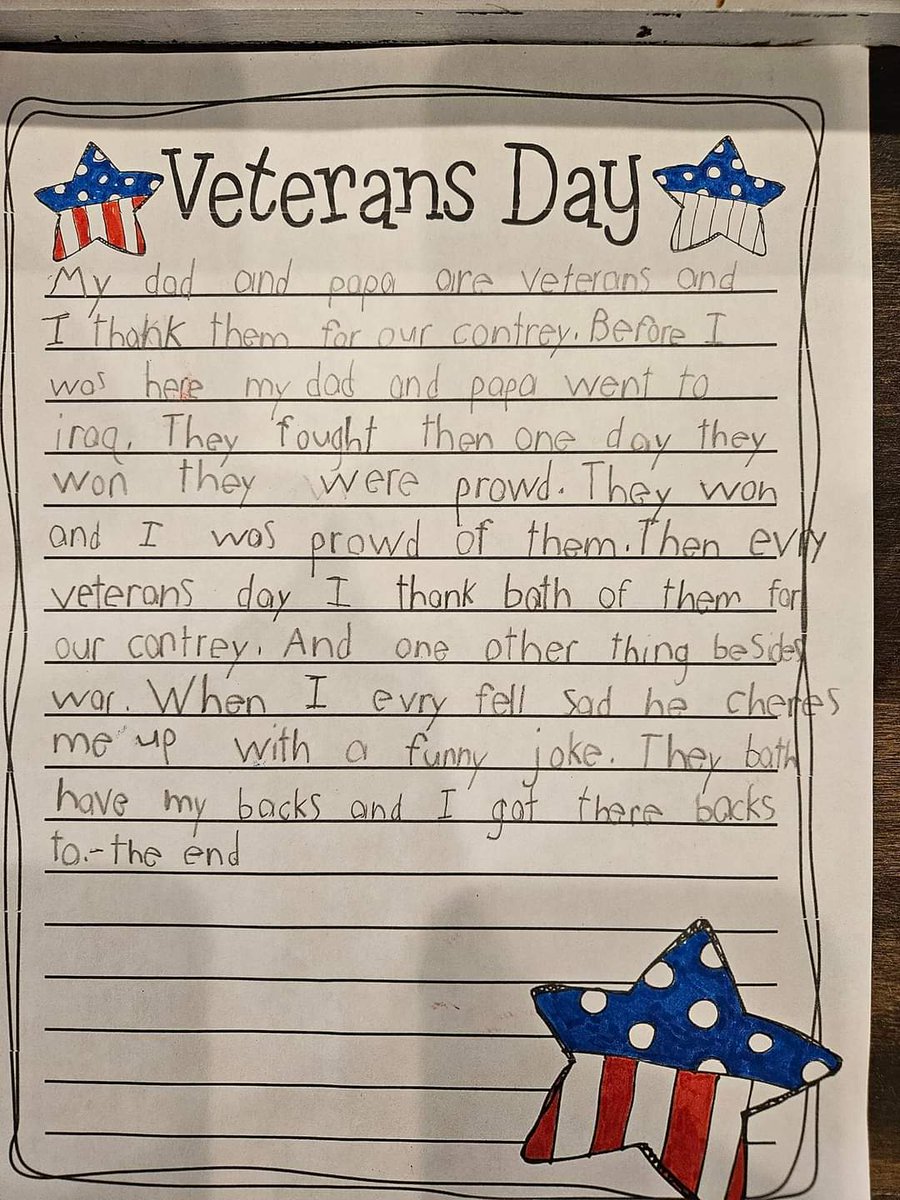 Veterans Day
My dad and papa are veterans and
I thank them for our contrey. Before I
was here my dad and papa went to
iraq. They fought then one day they
won they were prowd. They won
and I was prowd of them. Then evry
veterans day I thank bath of them for
our contrey. And one other thing besides
war. When I evry fell sad he cheres
me up with a funny joke. They bath
have my backs and I got there backs
to.-the end